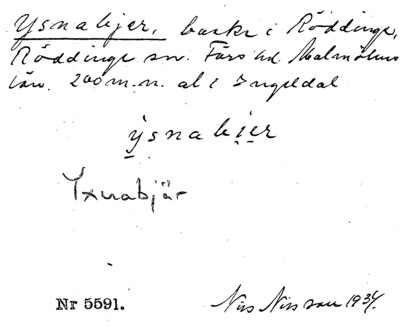 Ysnabjer, backe i Röddinge,
Röddinge sn. Färs hd. Malmöhus
län. 200 m. n. al i Ingeldal
ysnabjer
Yxnabjär
Nr 5591. Nils Nilsson 1934.